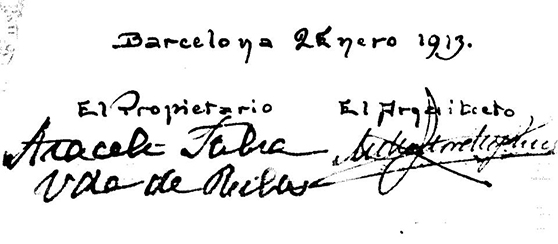 Barcelona 2 Enero 1913.
El Propietario El Arquitecto
Araceli Fabra
Vda de Ribas